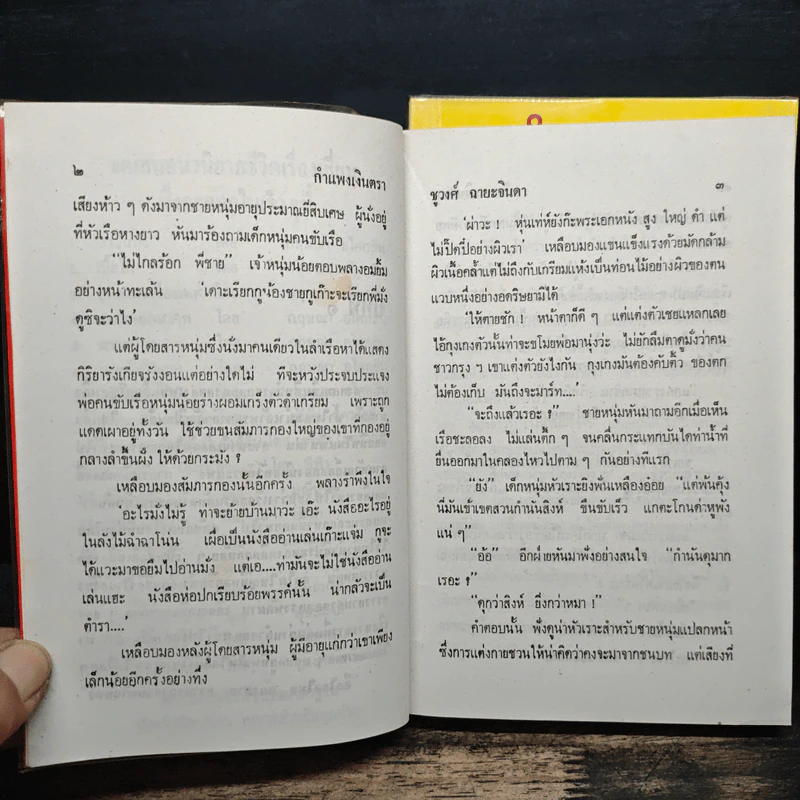 ๒ กำแพงเงินตรา
เสียงห้าว ๆ ดังมาจากชายหนุ่มอายุประมาณยี่สิบเศษ ผู้นั่งอยู่
ที่หัวเรือหางยาว หันมาร้องถามเด็กหนุ่มคนขับเรือ
“ไม่ไกลร้อก พี่ชาย” เจ้าหนุ่มน้อยตอบพลางอมยิ้ม
อย่างหน้าทะเล้น ‘เดาะเรียกกูน้องชายกูเก๊าะจะเรียกพี่มั่ง
ดูซิจะว่าไง’
แต่ผู้โดยสารหนุ่มซึ่งนั่งมาคนเดียวในลำเรือหาได้แสดง
กิริยารังเกียจรังงอนแต่อย่างใดไม่ ที่จะหวังประจบประแจง
พ่อคนขับเรือหนุ่มน้อยร่างผอมเกร็งตัวดำเกรียม เพราะถูก
แดดเผาอยู่ทั้งวัน ใช้ช่วยขนสัมภารกองใหญ่ของเขาที่กองอยู่
กลางลำขึ้นฝั่ง ให้ด้วยกระมัง ?
เหลือบมองสัมภารกองนั้นอีกครั้ง พลางรำพึงในใจ
‘อะไรมั่งไม่รู้ ท่าจะย้ายบ้านมาว่ะ เอ๊ะ นังสืออะไรอยู่
ในลังไม้ฉำฉาโน่น เผื่อเป็นนังสืออ่านเล่นเก๊าะแจ่ม กูจะ
ได้แวะมาขอยืมไปอ่านมั่ง แต่เอ....ท่ามันจะไม่ใช่นังสืออ่าน
เล่นแฮะ นังสือห่อปกเรียบร้อยพรรค์นั้น น่ากลัวจะเป็น
ตำรา....’
เหลือบมองหลังผู้โดยสารหนุ่ม ผู้มีอายุแก่กว่าเขาเพียง
เล็กน้อยอีกครั้งอย่างทึ่ง
ชูวงศ์ ฉายะจินดา ๓
‘ผ่าวะ ! หุ่นเท่ห์ยังก๊ะพระเอกหนัง สูง ใหญ่ ดำ แต่
ไม่ปี๊ดปี๋อย่างผิวเรา’ เหลือบมองแขนแข็งแรงด้วยมัดกล้าม
ผิวเนื้อคล้ำแต่ไม่ถึงกับเกรียมแห้งเป็นท่อนไม้อย่างผิวของตน
แวบหนึ่งอย่างอดริษยามิได้
‘ให้ตายซัก ! หน้าตาก็ดี ๆ แต่แต่งตัวเชยแหลกเลย
ไอ้กุงเกงตัวนั้นท่าจะขโมยพ่อมานุ่งว่ะ ไม่ยักลืมตาดูมั่งว่าคน
ชาวกรุง ๆ เขาแต่งตัวยังไงกัน กุงเกงมันต้องคับติ้ว ของตก
ไม่ต้องเก็บ มันถึงจะมาร์ท....’
“จะถึงแล้วเรอะ ?” ชายหนุ่มหันมาถามอีกเมื่อเห็น
เรือชะลอลง ไม่แล่นตั๊ก ๆ จนคลื่นกระแทกบันไดท่าน้ำที่
ยื่นออกมาในคลองไหวไปตาม ๆ กันอย่างทีแรก
“ยัง” เด็กหนุ่มหัวเราะยิงฟันเหลืองอ๋อย “แต่พ้นคุ้ง
นี่มันเข้าเขตสวนกำนันสิงห์ ขืนขับเร็ว แกตะโกนด่าหูพัง
แน่ ๆ”
“อ้อ” อีกฝ่ายหันมาฟังอย่างสนใจ “กำนันดุมาก
เรอะ ?
“ดุกว่าสิงห์ ยิ่งกว่าหมา !”
คำตอบนั้น ฟังดูน่าหัวเราะสำหรับชายหนุ่มแปลกหน้า
ซึ่งการแต่งกายชวนให้น่าคิดว่าคงจะมาจากชนบท แต่เสียงที่